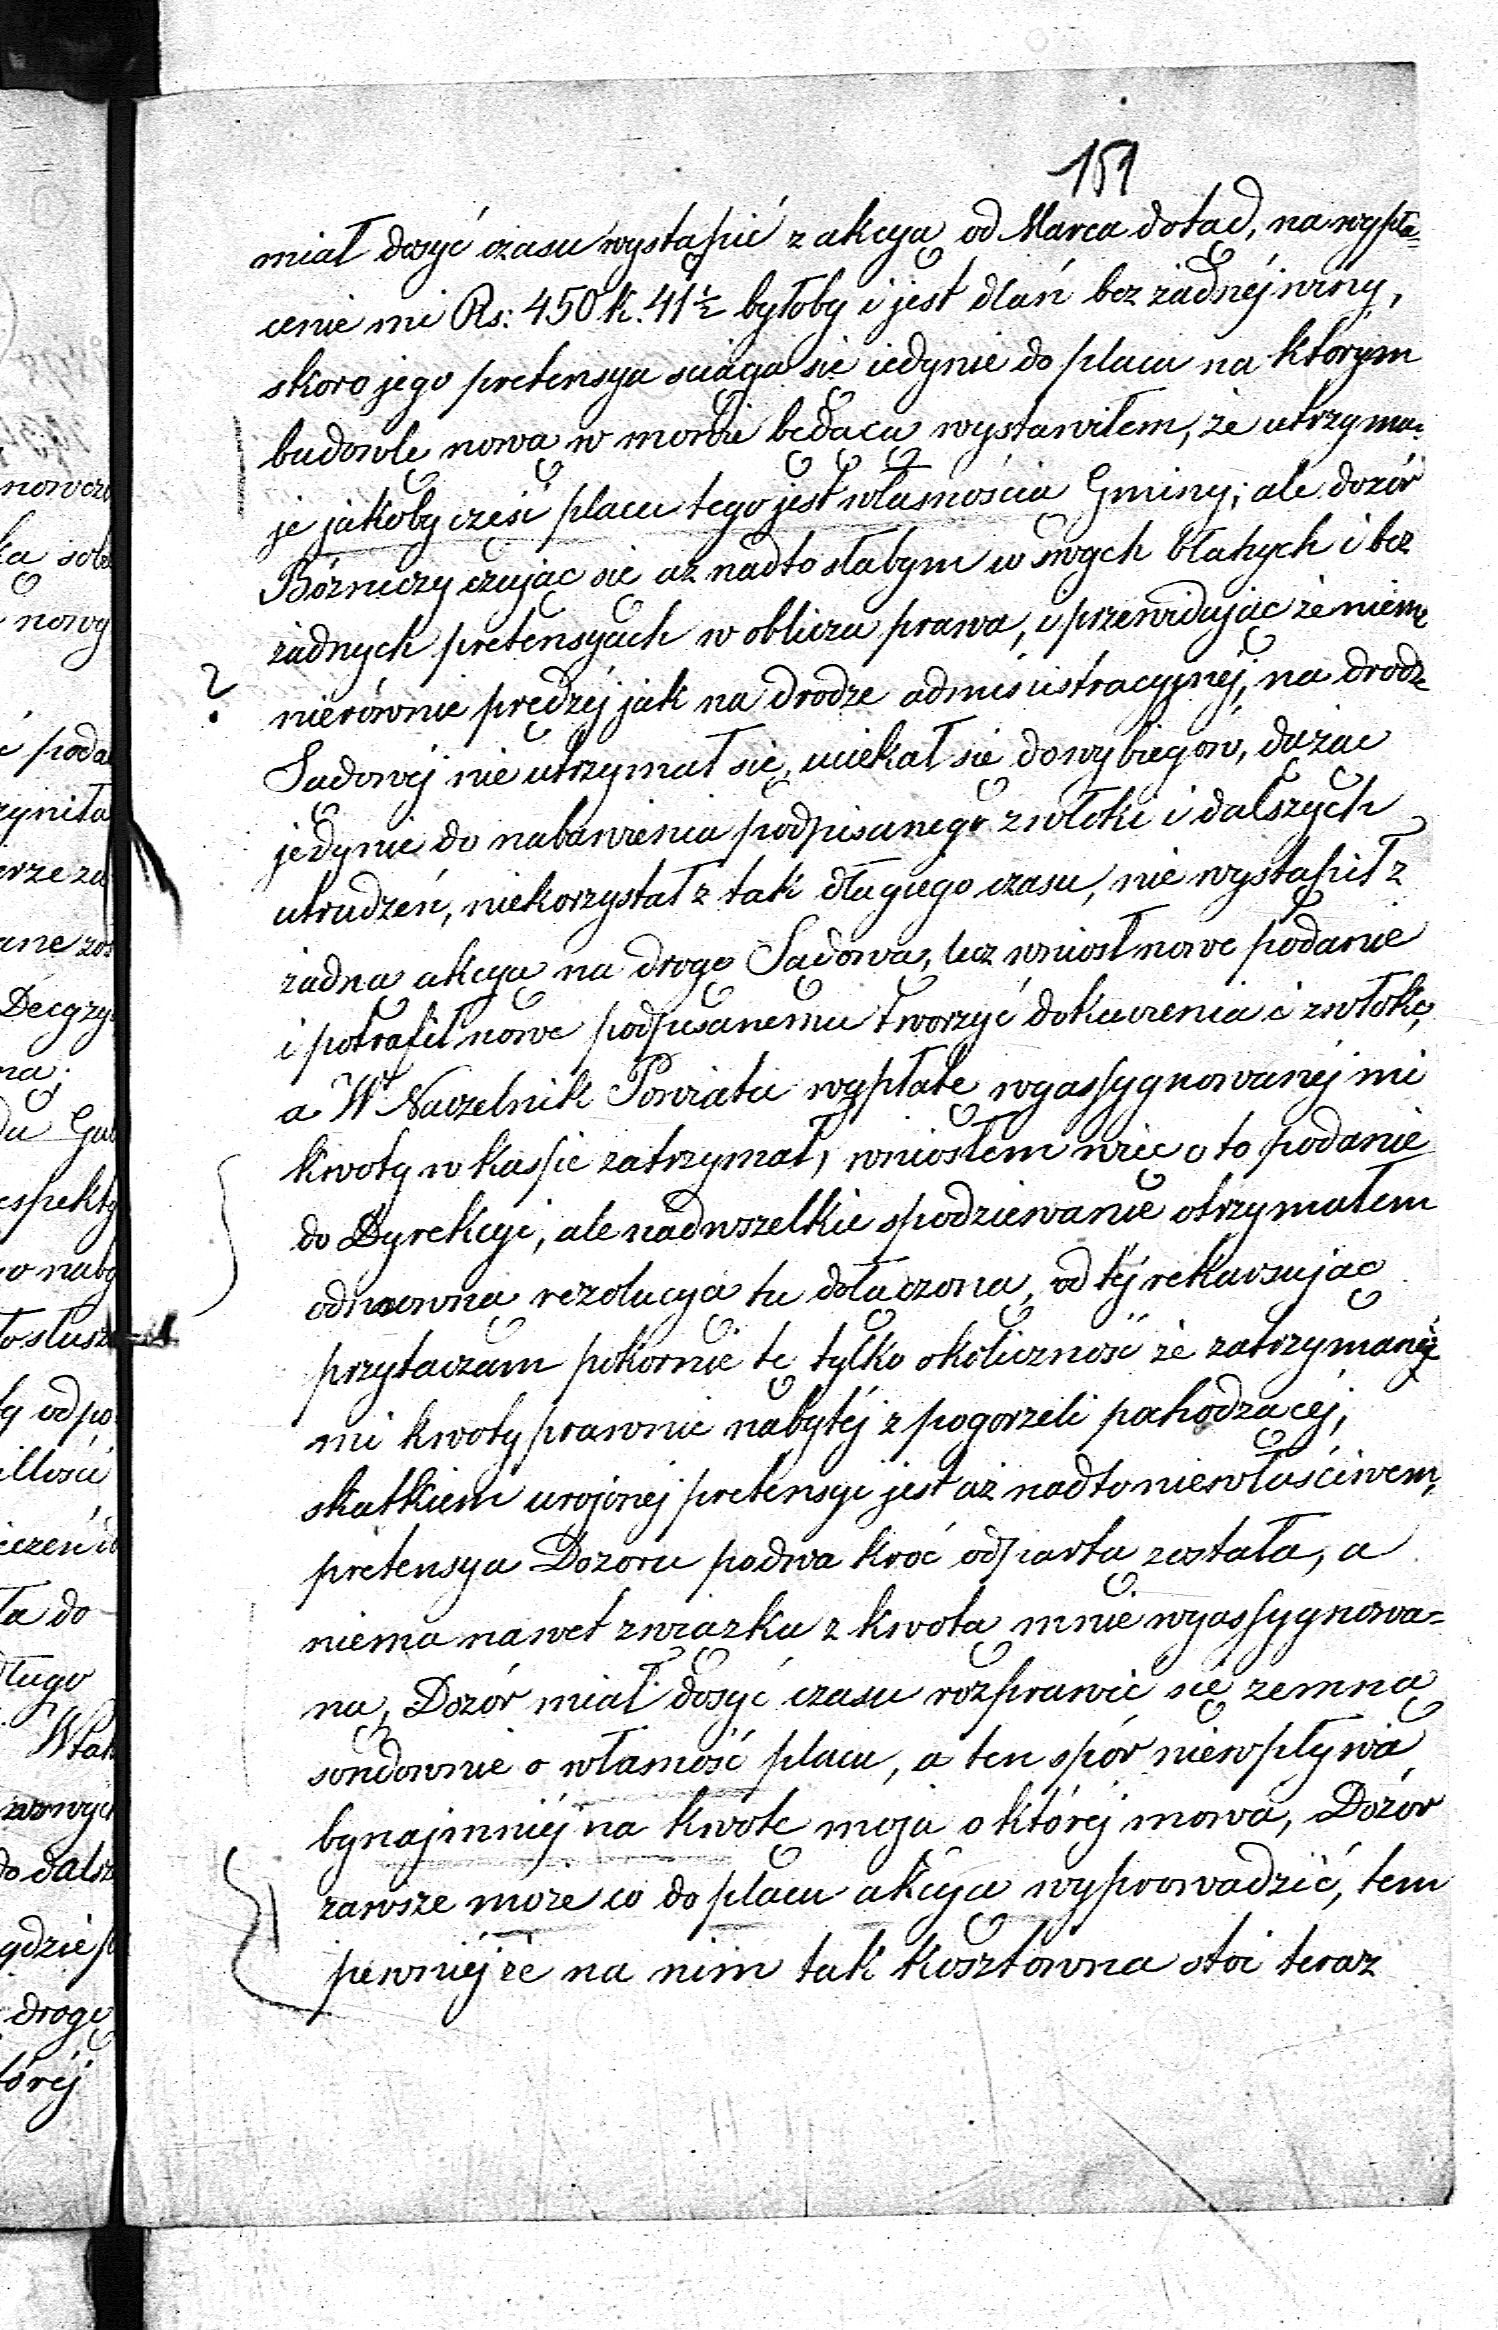 151
miał dosyć czasu wystąpić z akcyą od Marca dotąd, na wypła=
cenie mi Rs: 450 k. 41½ byłoby i jest dlań bez żadnéj winy,
skoro jego pretensya ściąga się iedynie do placu na którym
budowlę nową w mowie będącą wystawiłem, że utrzymu=
je jakoby część placu tego jest własnością Gminy; ale dozór
Bóżniczy czując się aż nadto słabym w swych błahych i bez
żadnych pretensyach w obliczu prawa, i przewidując że
nierównie prędzéj jak na drodze administracyjnéj, na drodze
Sądowéj nie utrzymał się, uciekał się do wybiegów, dążąc
jedynie do nabawienia podpisanego zwłoki i dalszych
utrudzeń, niekorzystał z tak długiego czasu, nie wystąpił z
żadną akcyą na drogę Sądową, lecz wniosł nowe podanie
i potrafił nowe podpisanemu tworzyć dokuczenia i zwłokę,
a Wy Naczelnik Powiatu wypłatę wyassygnowanéj mi
kwoty w kassie zatrzymał, wniosłem więc o to podanie
do Dyrekcyi, ale nadwszelkie spodziewanie otrzymałem
odmowną rezolucyą tu dołączoną, od téj rekursując
przytaczam pokornie tę tylko okoliczność że zatrzymanéj
mi kwoty prawnie nabytéj z pogorzeli pochodzącéj,
skutkiem urojonéj pretensyi jest aż nadto niewłaściwem,
pretensya Dozoru podwa kroć odpartą została, a
niema nawet związku z kwotą mnie wyassygnowa=
ną, Dozór miał dosyć czasu rozprawić się zemną
sondownie o własność placu, a ten spór niewpływa
bynajmniéj na kwotę moją o któréj mowa, Dozór
zawsze może co do placu akcyą wyprowadzić, tem
pewniéj że na nim tak kosztowna stoi teraz